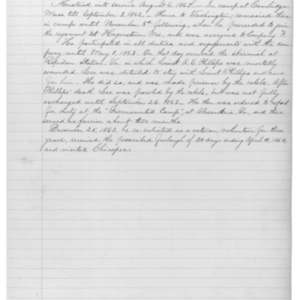 Mustered into service August 6, 1862. In camp at Cambridge
Mass till September 3, 1862. Thence to Washington, remained there
in camp until November 5th following, when he proceeded to join
the regiment at Hagerstown Md, and was assigned to Company F.
He participated in all duties and engagements with the com-
pany until May 3, 1863. On that day occurred the skirmish at
Rapidan Station, Va. in which Lieut. A. E. Phillips was mortally
wounded. Lew was detailed to stay with Lieut Phillips and care
for him. He did so, and was made prisoner by the rebels. After
Phillips' death Lew was paroled by the rebels, but was not fully
exchanged until September 22, 1863. He then was ordered to report
for duty at the "Dismounted Camp" at Alexandria Va. and there
served as farrier about two months.
December 25, 1863, he re-enlisted as a veteran volunteer for three
years, received the prescribed furlough of 30 days ending April 10, 1864
and